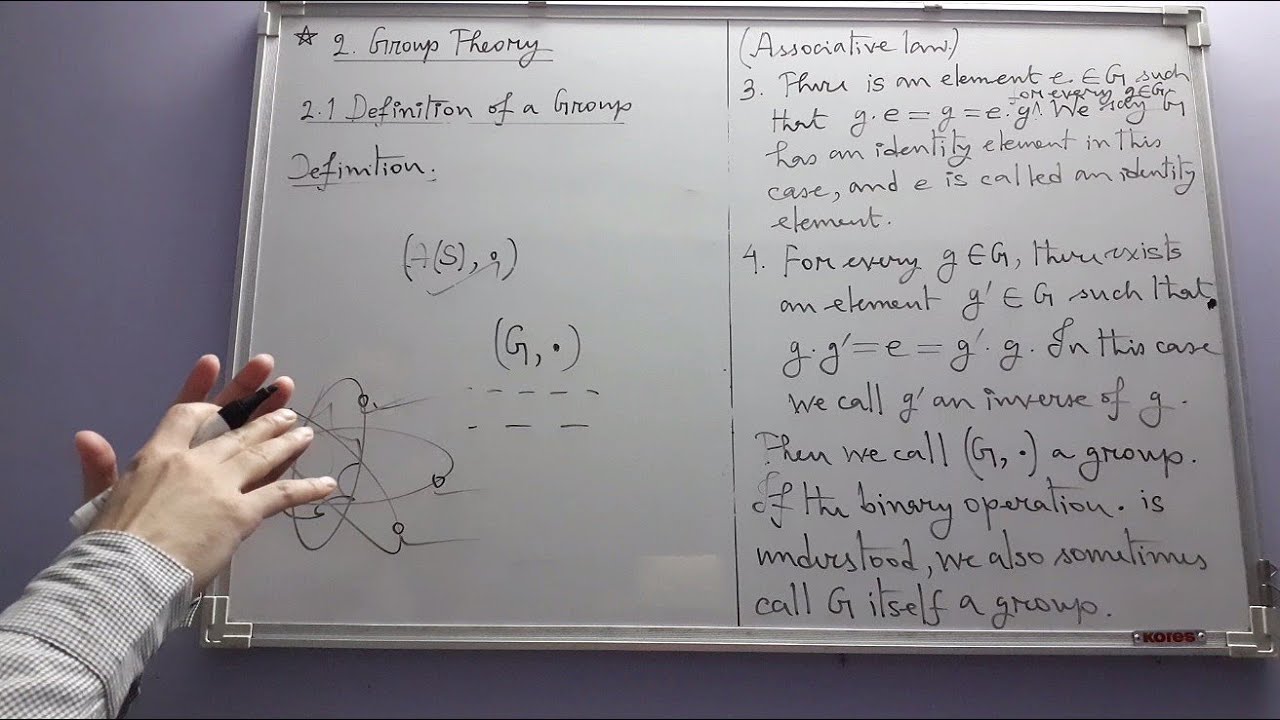 ☆ 2. Group Theory
2.1 Definition of a Group
Definition.
(A(S), •)
(G, •)
(Associative law.)
3. There is an element e ∈ G such
for every g∈G
that g.e = g = e.g^. We say G
has an identity element in this
case, and e is called an identity
element.
4. For every g ∈ G, there exists
an element g' ∈ G such that
g.g' = e = g'.g. In this case
we call g' an inverse of g.
Then we call (G, •) a group.
If the binary operation . is
understood, we also sometimes
call G itself a group.
Kores